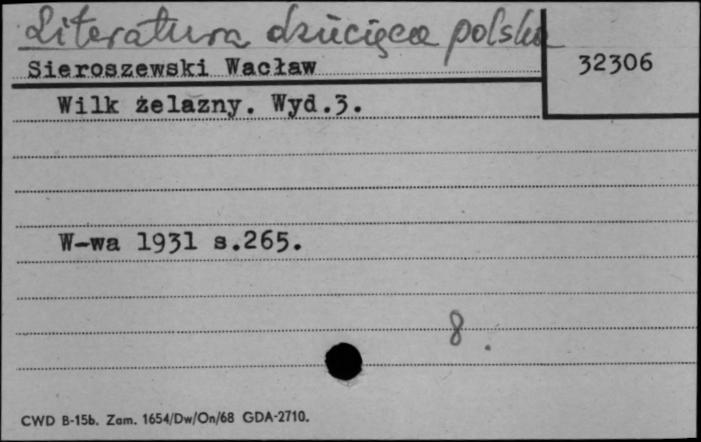 Literatura dziecięca polska
Sieroszewski Wacław
32306
Wilk żelazny. Wyd.3.
W-wa 1931 s.265.
8.
CWD B-15b. Zam. 1654/Dw/On/68 GDA-2710.